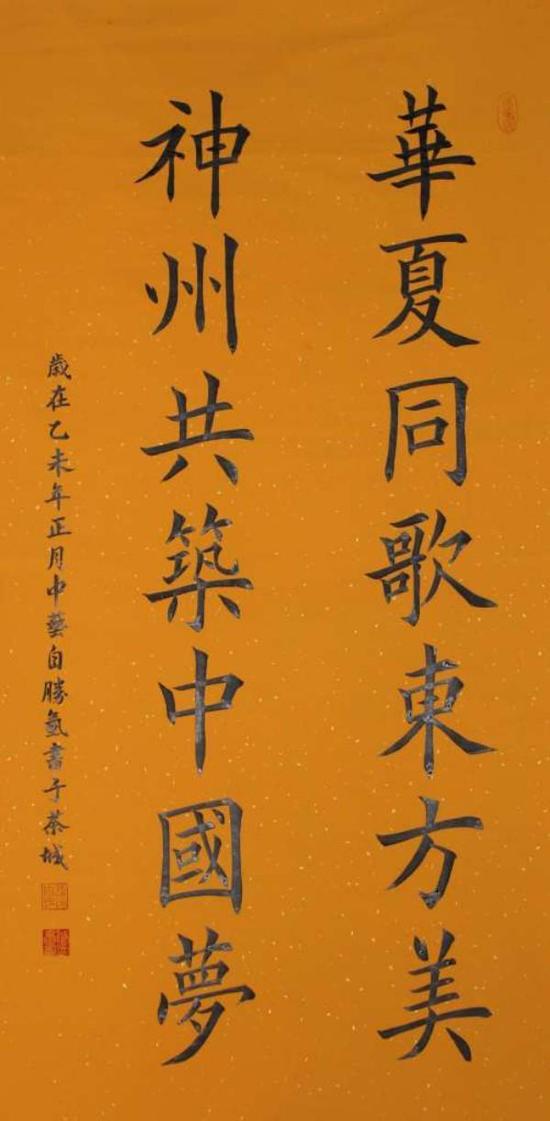 華夏同歌東方美
神州共築中國夢
歲在乙未年正月中藝自勝氫書于茶城